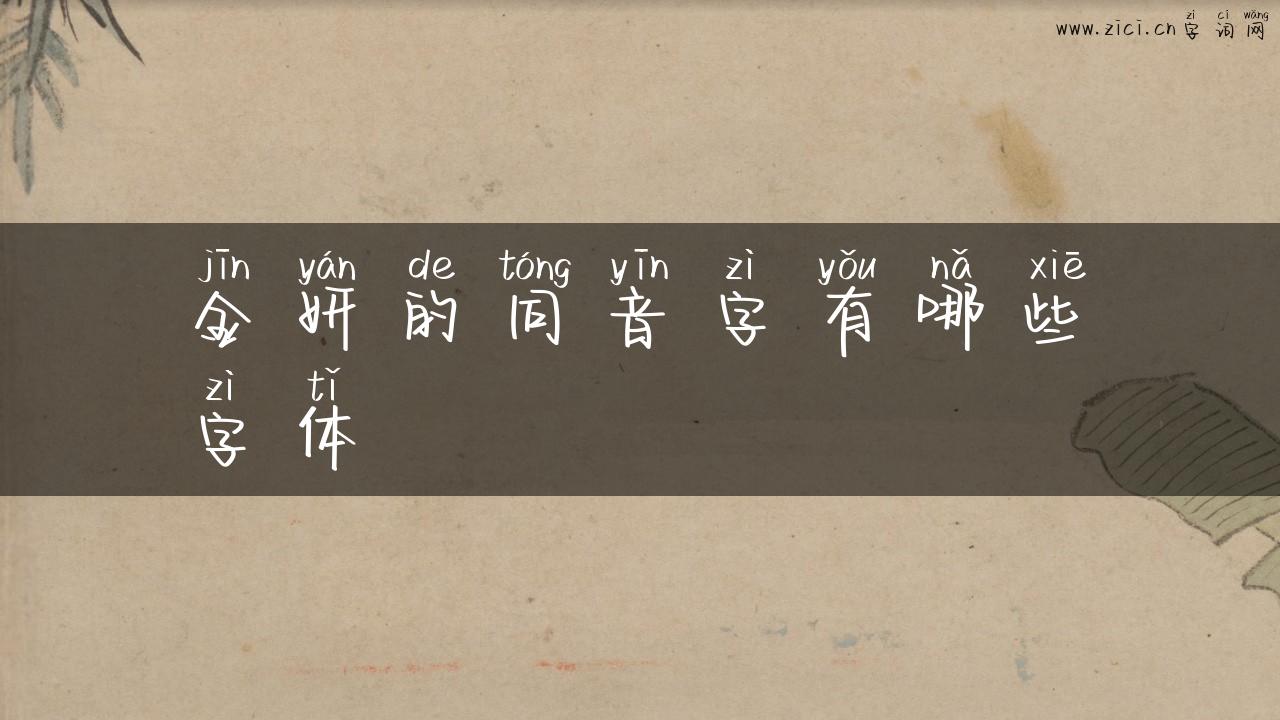 zì cí wǎng
www.zici.cn 字 词 网
jīn yán de tóng yīn zì yǒu nǎ xiē
金 妍 的 同 音 字 有 哪 些
zì tǐ
字 体